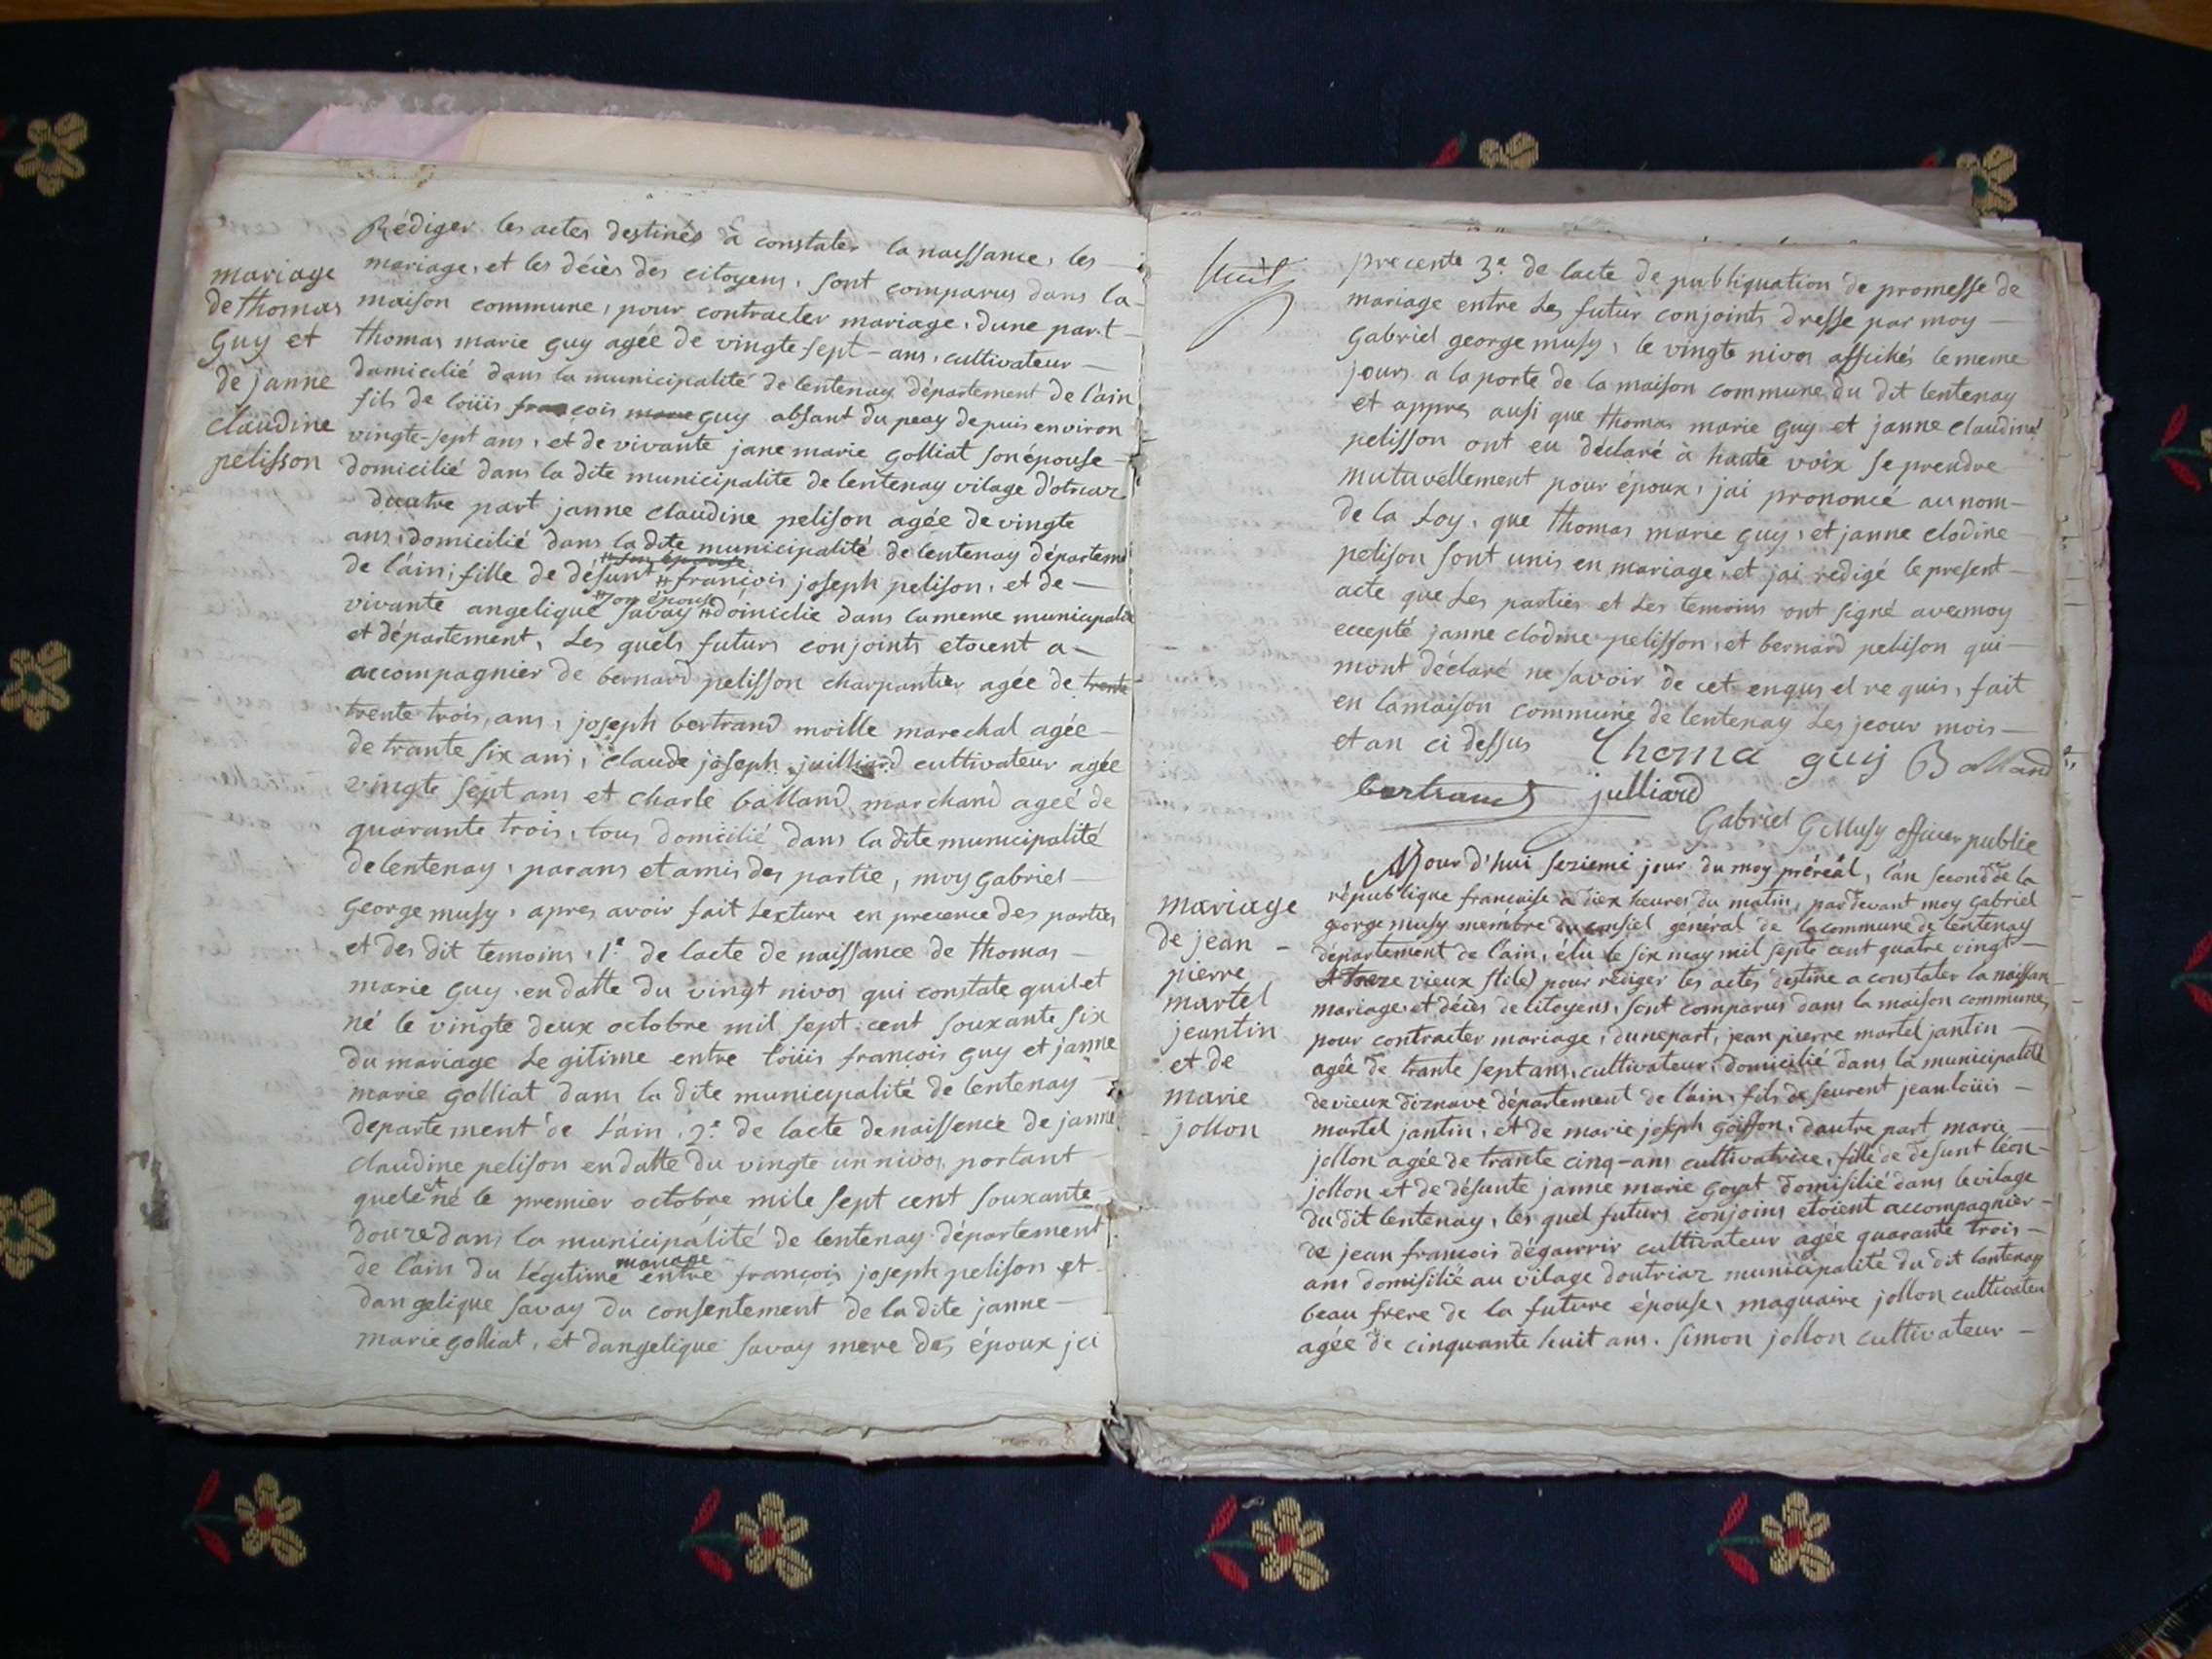 mariage
de thomas
Guy et
de janne
claudine
pelisson
Rédiger les actes destinés à constater la naissance, les
mariage, et les décès des citoyens, sont comparus dans la
maison commune, pour contracter mariage, dune part
thomas marie guy agée de vingte-sept-ans, cultivateur
domicilié dans la municipalité de lentenay département de l'ain
fils de loüis françois marie guy absant du peay depuis environ
vingte-sept ans, et de vivante jane marie golliat son épouse
domicilié dans la dite municipalite de lentenay vilage d'otriaz
dautre part janne claudine pelison agée de vingte
ans, domicilié dans la dite municipalité de lentenay départeme
# son épouse
de l'ain, fille de défunt # françois joseph pelison, et de
# son épouse
vivante angelique savay # doiniclie dans la meme municipalité
et département, Les quels futurs conjoints etoient a
accompagnier de bernard pelisson charpantier agée de trente
trente trois, ans, joseph bertrand moille marechal agée
de trante six ans, claude joseph juilliard cultivateur agée
vingte sept ans et charle balland marchand ageé de
quarante trois, tous domicilié dans la dite municipalité
de lentenay, parans et amis des partie, moy gabriel
george musy, apres avoir fait lecture en precence des parties
et des dit temoins, 1º de lacte de naissance de thomas
marie guy en datte du vingt nivos qui constate quil et
né le vingte deux octobre mil sept cent souxante six
du mariage Le gitime entre loüis françois guy et janne
marie golliat dans la dite municipalité de lentenay
departement de L'ain, 2º de lacte de naissence de janne
claudine pelison en datte du vingte un nivos portant
quele et né le premier octobre mile sept cent souxante
douze dans la municipalité de lentenay département
mariage
de l'ain du légitime entre françois joseph pelison et
dangelique savay du consentement de la dite janne
marie golliat, et dangelique savay mere des époux jci
huit
precente 3º de lacte de publiquation de promesse de
mariage entre Les futur conjoints dresse par moy
Gabriel george musy, le vingte nivos affichés le meme
jours a la porte de la maison commune du dit lentenay
et appres ausi que thomas marie guy et janne claudine
pelisson ont eu déclaré à haute voix se prendre
mutuvellement pour époux, jai prononcé au nom
de la Loy, que thomas marie guy, et janne clodine
pelison sont unis en mariage, et jai redigé le present
acte que Les parties et Les temoins ont signé avec moy
ecepté janne clodine pelisson, et bernard pelison qui
mont déclaré ne savoir de cet enqus el re quis, fait
en la maison commune de lentenay Les jeour mois
et an ci dessus Thoma guij Balland
bertrand julliard
Gabriel G Musy officier public
mariage
de jean
pierre
martel
jeantin
et de
marie
jollon
Ajour d'hui sezieme jour du moy préréal, l'an second de la
république francaise à diex heures du matin, par devant moy Gabriel
george musy membre du consiel général de la commune de lentenay
département de l'ain, élu le six may mil septe cent quatre vingt
et treze vieux stile) pour rédiger les actes destine a constater la naissan
mariage, et décès de litoyens, sont comparus dans la maison commune
pour contracter mariage, dune part, jean pierre martel jantin
ageê de trante sept ans, cultivateur domicilié dans la municipalité
de vieux diznave département de l'ain, fils de feurent jean loüis
martel jantin, et de marie joseph goiffon, dautre part marie
jollon agée de trante cinq-ans cultivatrice, fille de defunt léon
jollon et de défunte janne marie goyat domisilié dans le vilage
du dit lentenay, les quel futurs conjoins etoient accompagnier
de jean françois dégourrir cultivateur ageé quarante trois
ans domisilié au vilage doutriaz municipalité du dit lentenay
beau frere de la future épouse, maquaire jollon cultivateu
agée de cinquante huit ans. simon jollon cultivateur